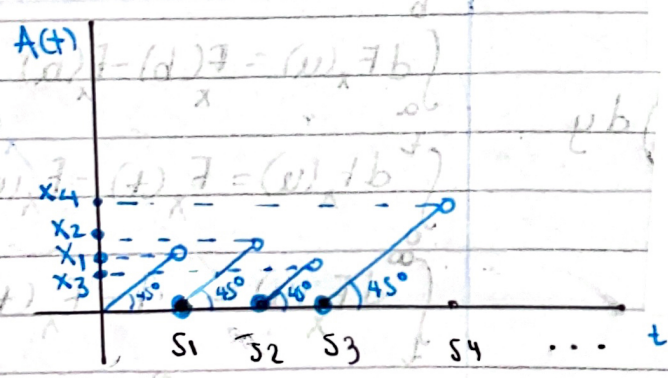 A(t)
x4
x2
x1
x3
45° 45° 45° 45°
S1 S2 S3 S4 .... t